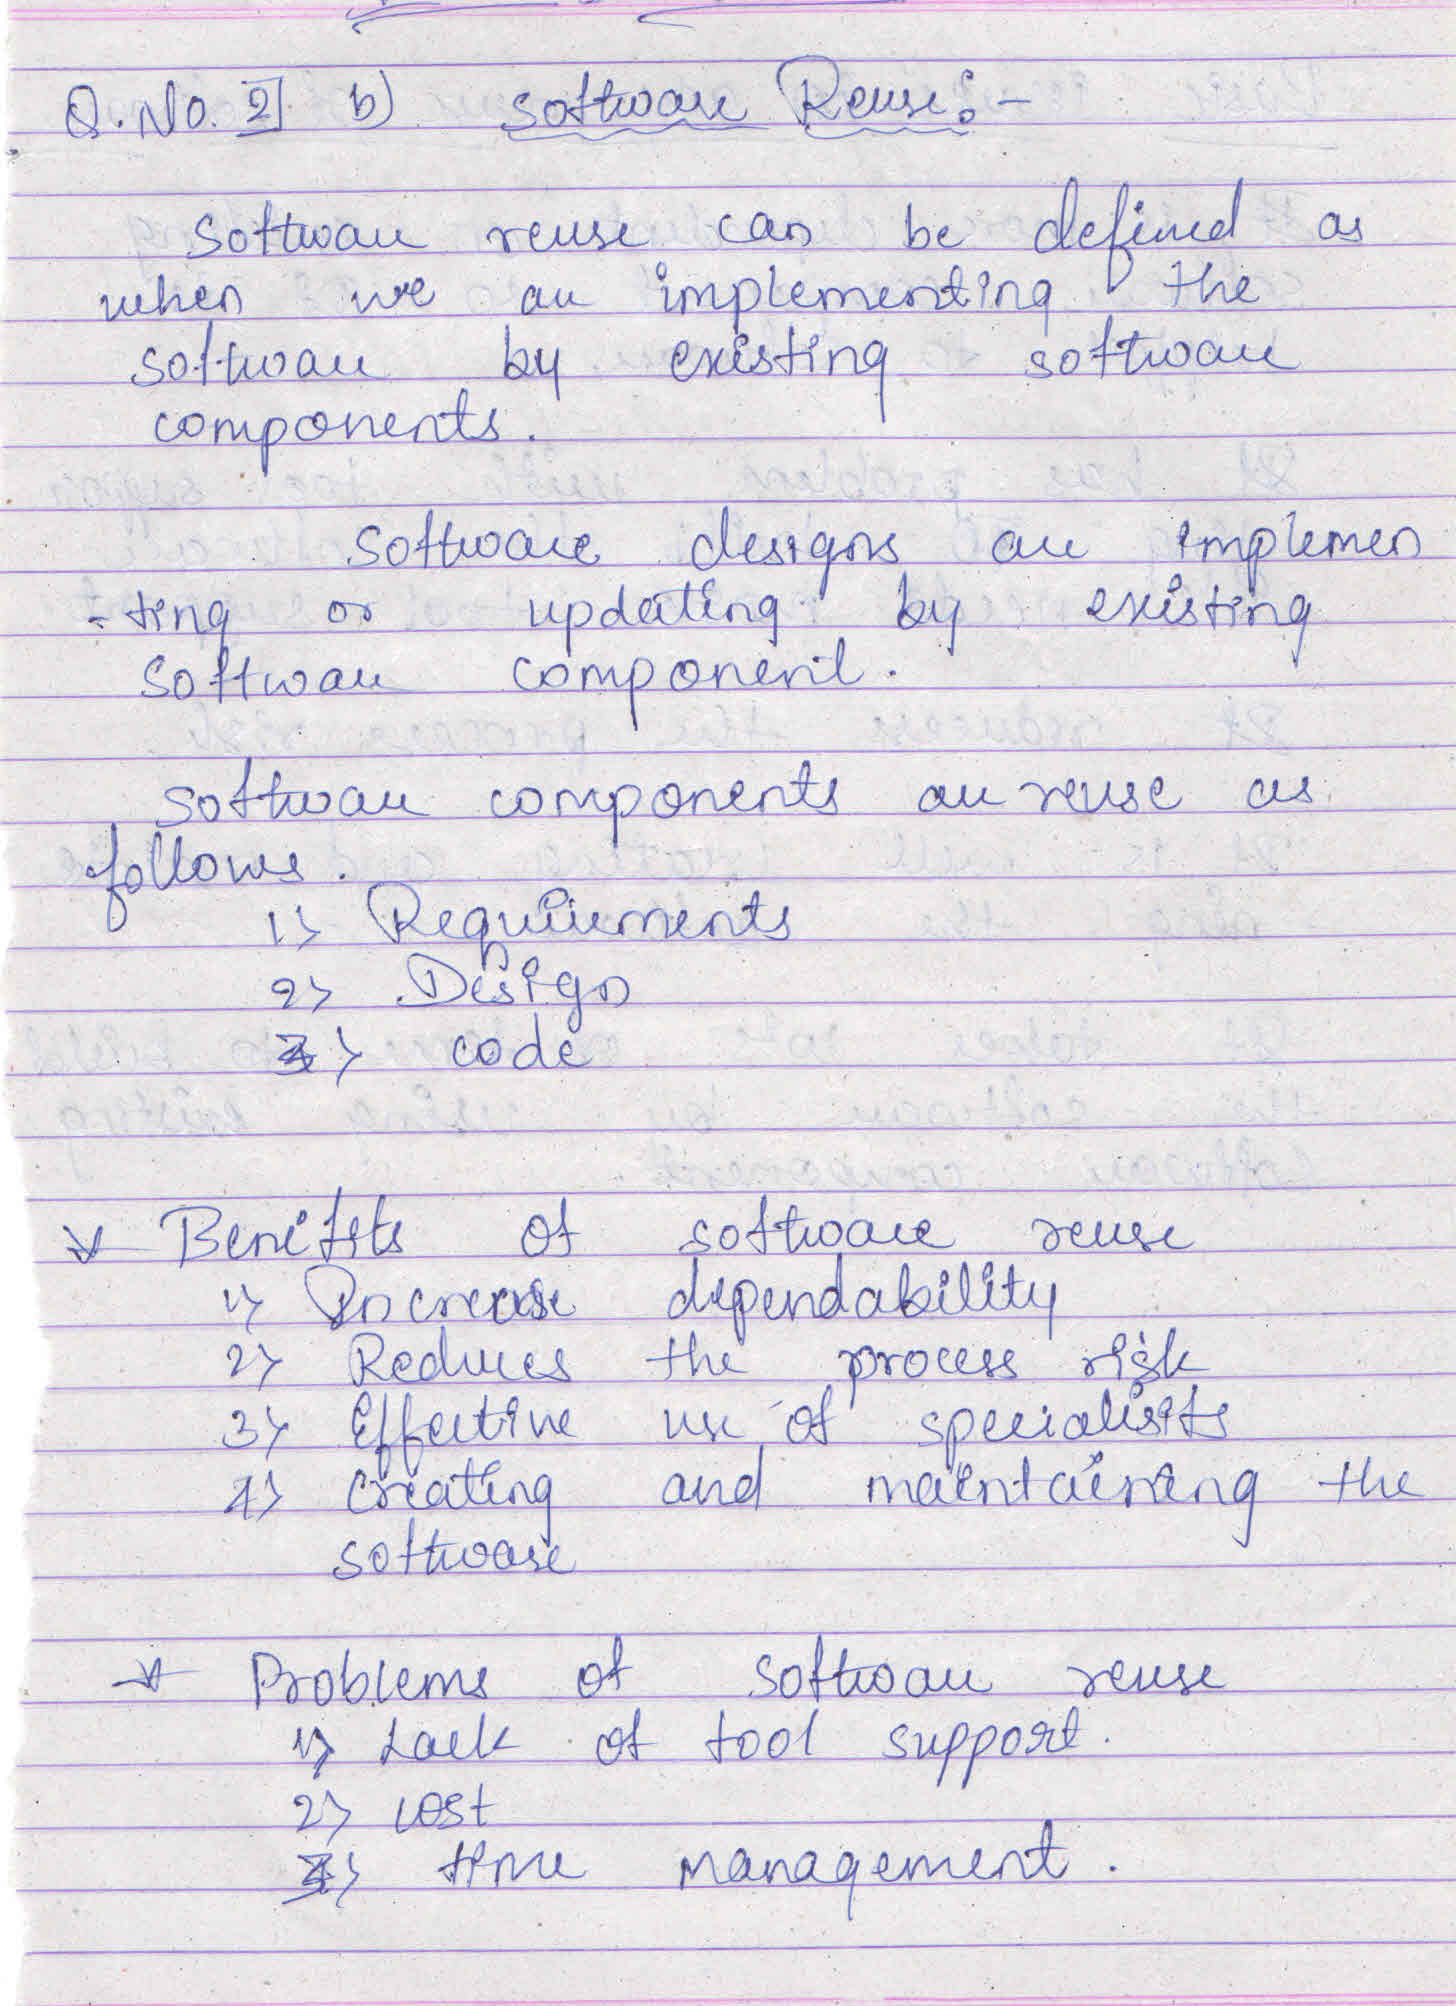 Q. No. 2] b) Software Reuse:-
Software reuse can be defined as
when we are implementing the
software by existing software
components.
Software designs are implemen
-ting or updating by existing
software component.
Software components are reuse as
follows.
1> Requirements
2> Design
3> code
Benifits of software reuse
1> Increase dependability
2> Reduces the process risk
3> Effective use of specialists
4> Creating and maintaining the
software
Problems of software reuse
1> Lack of tool support.
2> cost
3> time management.